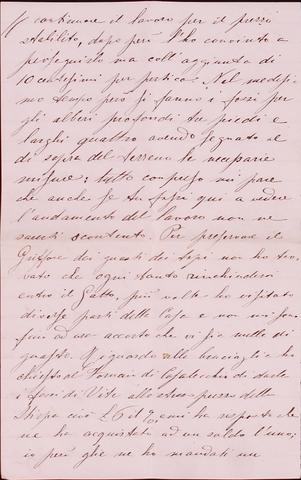 continuare il lavoro per il prezzo
stabilito, dopo però l'ho convinto a
proseguirlo ma coll'aggiunta di
10 centesimi per pertica. Nel medesi-
mo tempo però si fanno i fossi per
gli alberi profondi tre piedi e
larghi quattro avendo segnato al
di sopra del terreno le
misure; tutto compreso mi pare
che anche se tu fossi qui a vedere
l'andamento del lavoro non ne
saresti scontento. Per preservare il
dei guasti dei topi non ho tro-
vato che ogni tanto rinchiudervi
entro il Gatto, più volte ho visitato
diverse parti della Casa e non mi son
fin ad ora accorto che vi sia nulla di
guasto. Riguardo alle ho
chiesto al di Casalecchio di darle
i fossi di Vite allo stesso prezzo della
Stoppa cioè e mi ha risposto che
ne ha acquistate ad un soldo l'uno,
io però glie ne ho mandati un